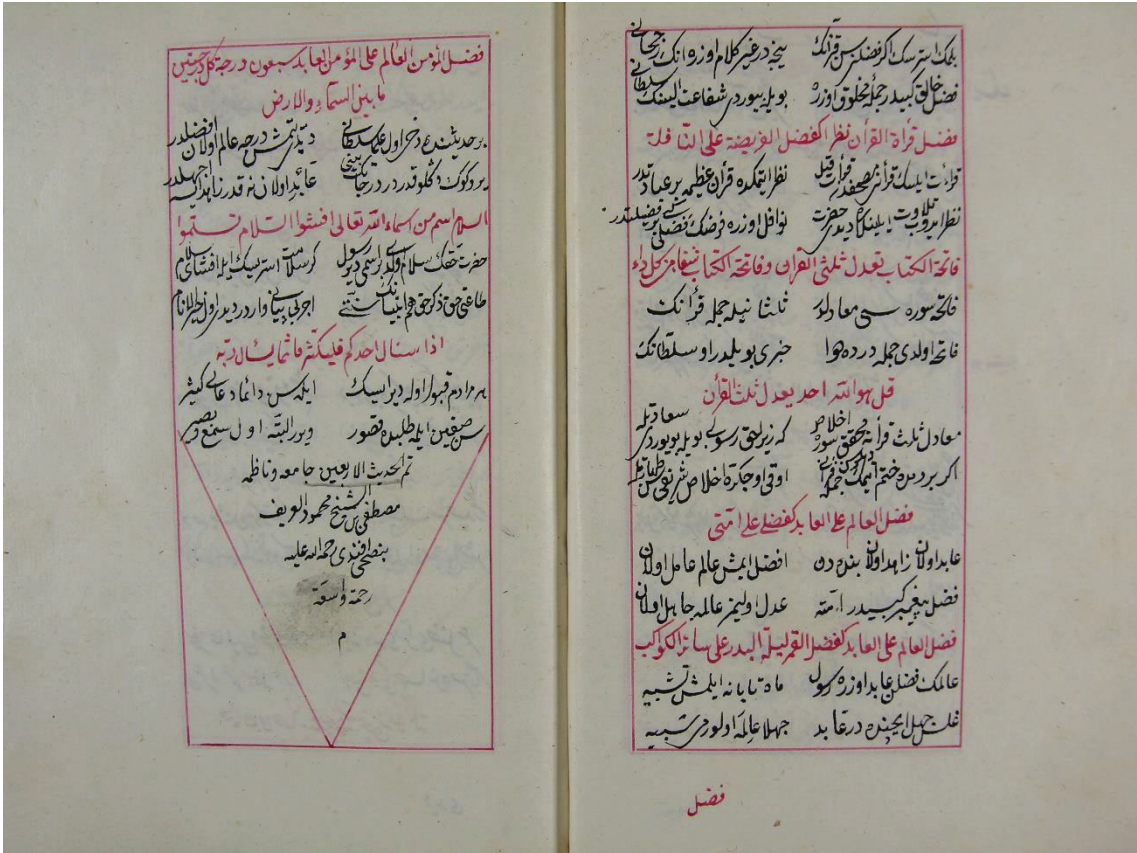 بلمك استرسك اكر فضلن سن قرانك نيجه در غير كلام اوزره انك رجحانى
فضل خالق كبيدر جملۀ مخلوق اوزره بويله بيوردى شفاعت السنك سلطانى
فضل قرأة القرأن نظرا كفضل الفريضة على النافلة
قرائت ايلسك قرأنى مصحفدن قرأت قيل نظر ايتمكده قرأن عظيمه بر عبادتدر
نظر ايدوب تلاوت ايلينلره ديدى حضرت نوافل اوزره فرضك فضلى بر فضيلتدر
فاتحة الكتاب تعدل ثلثى القرأن وفاتحة الكتاب شفا من كل داء
فاتحه سوره سى معادلدر ثلثانيله جمله قرأنك
فاتحه اولدى جمله درده دوا خبرى بويله در او سلطانك
قل هو الله احد يعدل ثلث القرأن
معادل ثلث قرأنه بتحقق سورۀ اخلاص كه زيرا حق رسولى بويله بويوردى سعادتله
اكر بر دمده ختم ايتمك ديلرسن جمله قرأنى اوقى اوچ كره اخلاص شريفى
فضل العالم على العابد كفضلى على امتى
عابد اولان زاهد اولان بنده دن افضل ايمش عالم عامل اولان
فضل پيغمبر كبيدر امته عدل اوليمز عالمه جاهل اولان
فضل العالم على العابد كفضل القمر ليلة البدر على سائر الكواكب
عالمك فضلن عابد اوزره رسول ماه تابانه ايلمش تشبيه
غلن جهل ايچنده در عابد جهلا عالمه اولورمى شبيه
فضل
فضل المؤمن العالم على المؤمن العابد سبعون درجة كل درجتين
مابين السماء والارض
بر حديثنده دخى اول عليم سلطانى ديدى يتمش درجه عالم اولان افضلدر
ير دكوك دكلو قدر در درجاتك بينى عابد اولان نه قدر زاهد ايسه اجهلدر
السلام اسم من اسماء الله تعالى افشوا السلام تسلموا
حضرت حقك سلام اولدى بر اسمى دير رسول كر سلامت استرسك ايله افشاى سلام
طاعتى حق ذكر حق هم انبيانك سنتى اجر بى پايانى واردر ديدى اول خير الانام
اذا سئال احدكم فليكثر فانما يسئال ربه
هر مرادم قبول اوله ديرايسك ايله سن دائما دعايى كثير
سن صقين ايله طلبده قصور ويرر البته اول سميع وبصير
تم الحديث الاربعين جامعه وناظمه
مصطفى بن الشيخ محمود العريف
بنصحى افندى رحمة الله عليه
رحمة واسعة
م